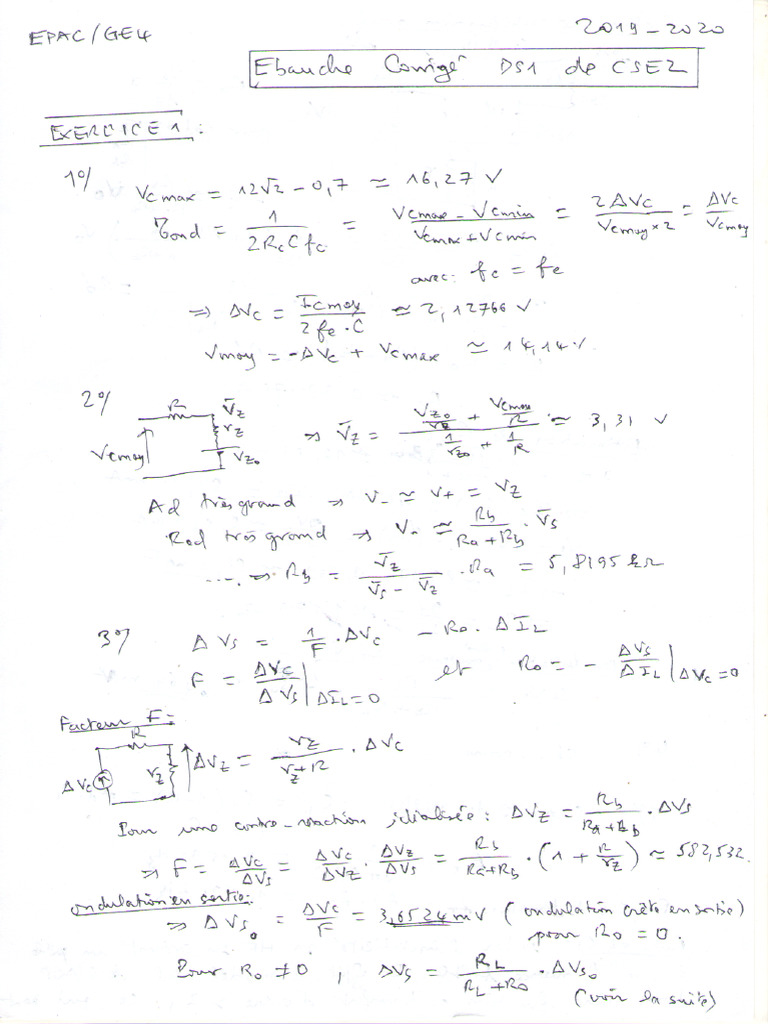 EPAC/GE4
2019-2020
Ebauche Corrigé DS1 de CSE2
EXERCICE 1 :
1°/
Vcmax = 12√2 - 0,7 ≃ 16,27 V
τond = 1/(2RcCfc) = (Vcmax - Vcmin)/(Vcmax + Vcmin) = 2ΔVc/(Vcmoy×2) = ΔVc/Vcmoy
avec: fc = fe
⇒ ΔVc = Icmoy/(2fe.C) ≃ 2,12766 V
Vmoy = -ΔVc + Vcmax ≃ 14,14 V
2°/
R V̄z rz Vcmoy Vzo
⇒ V̄z = (Vzo/rz + Vcmoy/R)/(1/rzo + 1/R) ≃ 3,31 V
Ad très grand ⇒ V- ≃ V+ = Vz
Red très grand ⇒ V- ≃ Rb/(Ra+Rb) . V̄s
.... ⇒ Rb = V̄z/(V̄s - V̄z) .Ra = 5,8195 kΩ
3°/
ΔVs = 1/F .ΔVc - Ro. ΔIL
F = ΔVc/ΔVs |ΔIL=0 et Ro = - ΔVs/ΔIL |ΔVc=0
Facteur F:
R ΔVc rz ΔVz = rz/(rz+R) . ΔVc
Pour une contre-réaction idéalisée: ΔVz = Rb/(Ra+Rb) .ΔVs
⇒ F = ΔVc/ΔVs = ΔVc/ΔVz . ΔVz/ΔVs = Rb/(Ra+Rb) . (1 + R/rz) ≃ 582,532.
ondulation en sortie:
⇒ ΔVso = ΔVc/F = 3,6524 mV (ondulation crête en sortie)
pour Ro = 0.
Pour Ro ≠ 0 , ΔVs = RL/(RL+Ro) . ΔVso
(voir la suite)